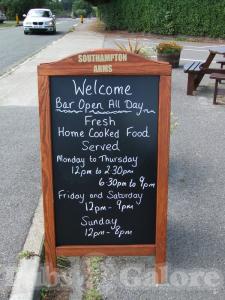 SOUTHAMPTON
ARMS
Welcome
Bar Open All Day
Fresh
Home Cooked Food
Served
Monday to Thursday
12pm to 2:30pm
6:30pm to 9pm
Friday and Saturday
12pm - 9pm
Sunday
12pm - 8pm
Pubs Galore